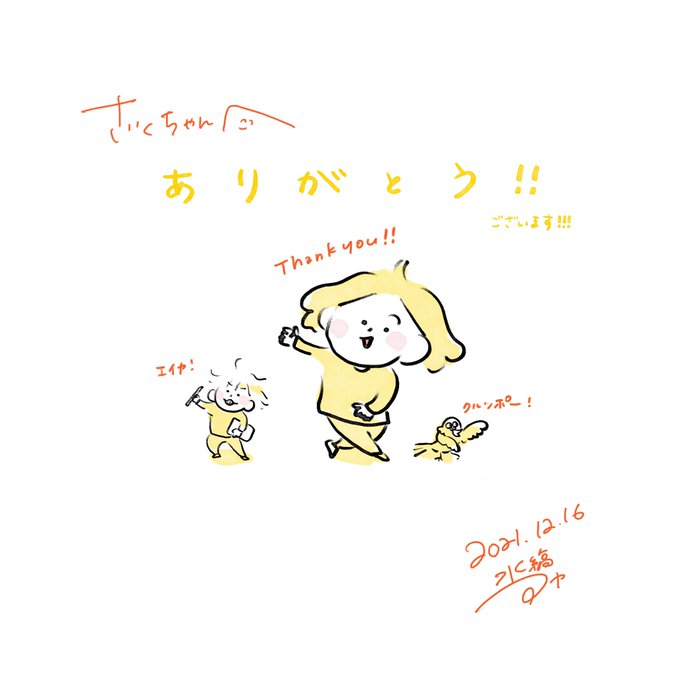 さいくちゃん
ありがとう!!
ございます!!!
Thank you!!
エイヤ!
クルッポー!
2021.12.16
水縞